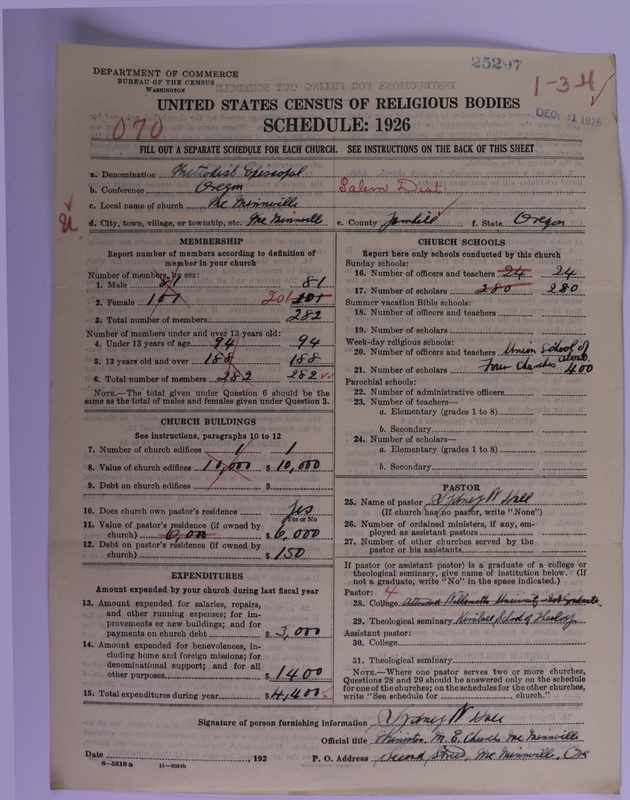 25297
DEPARTMENT OF COMMERCE
BUREAU OF THE CENSUS
WASHINGTON
1-34
DEC 21 1926
UNITED STATES CENSUS OF RELIGIOUS BODIES
070
SCHEDULE: 1926
FILL OUT A SEPARATE SCHEDULE FOR EACH CHURCH. SEE INSTRUCTIONS ON THE BACK OF THIS SHEET
a. Denomination Methodist Episcopal
b. Conference Oregon Salem Dist
c. Local name of church Mc Minnville
d. City, town, village, or township, etc. Mc Minnvill e. County Yamhill f. State Oregon
MEMBERSHIP
Report number of members according to definition of member in your church
Number of members, by sex:
1. Male 81 81
2. Female 101 201 101
3. Total number of members 282
Number of members under and over 13 years old:
4. Under 13 years of age 94 94
5. 13 years old and over 188 188
6. Total number of members 282 282
NOTE.—The total given under Question 6 should be same as the total of males and females given under Question 3.
CHURCH BUILDINGS
See instructions, paragraphs 10 to 12
7. Number of church edifices 1 1
8. Value of church edifices 10,000 $ 10,000
9. Debt on church edifices $
10. Does church own pastor's residence yes
Yes or No
11. Value of pastor's residence (if owned by church) 6,000 $ 6,000
12. Debt on pastor's residence (if owned by church) $ 150
EXPENDITURES
Amount expended by your church during last fiscal year
13. Amount expended for salaries, repairs, and other running expenses; for improvements or new buildings; and for payments on church debt $ 3,000
14. Amount expended for benevolences, including home and foreign missions; for denominational support; and for all other purposes $ 1400
15. Total expenditures during year $ 4,400
CHURCH SCHOOLS
Report here only schools conducted by this church
Sunday schools:
16. Number of officers and teachers 24 24
17. Number of scholars 280 280
Summer vacation Bible schools:
18. Number of officers and teachers
19. Number of scholars
Week-day religious schools:
20. Number of officers and teachers Union School of
21. Number of scholars Four Churches about 400
Parochial schools:
22. Number of administrative officers
23. Number of teachers—
a. Elementary (grades 1 to 8)
b. Secondary
24. Number of scholars—
a. Elementary (grades 1 to 8)
b. Secondary
PASTOR
25. Name of pastor Sydney W Hall
(If church has no pastor, write "None")
26. Number of ordained ministers, if any, employed as assistant pastors
27. Number of other churches served by the pastor or his assistants
If pastor (or assistant pastor) is a graduate of a college or theological seminary, give name of institution below. (If not a graduate, write "No" in the space indicated.)
Pastor: 4
28. College Attended Willamette University not Graduate
29. Theological seminary Kimball School of Theology
Assistant pastor:
30. College
31. Theological seminary
NOTE.—Where one pastor serves two or more churches, Questions 28 and 29 should be answered only on the schedule for one of the churches; on the schedules for the other churches, write "See schedule for church."
Signature of person furnishing information Sydney W Hall
Official title Minister M. E. Church Mc Minnville
Date , 192
P. O. Address Second Street, Mc Minnville, Ore
8—5518 a 11—9684b